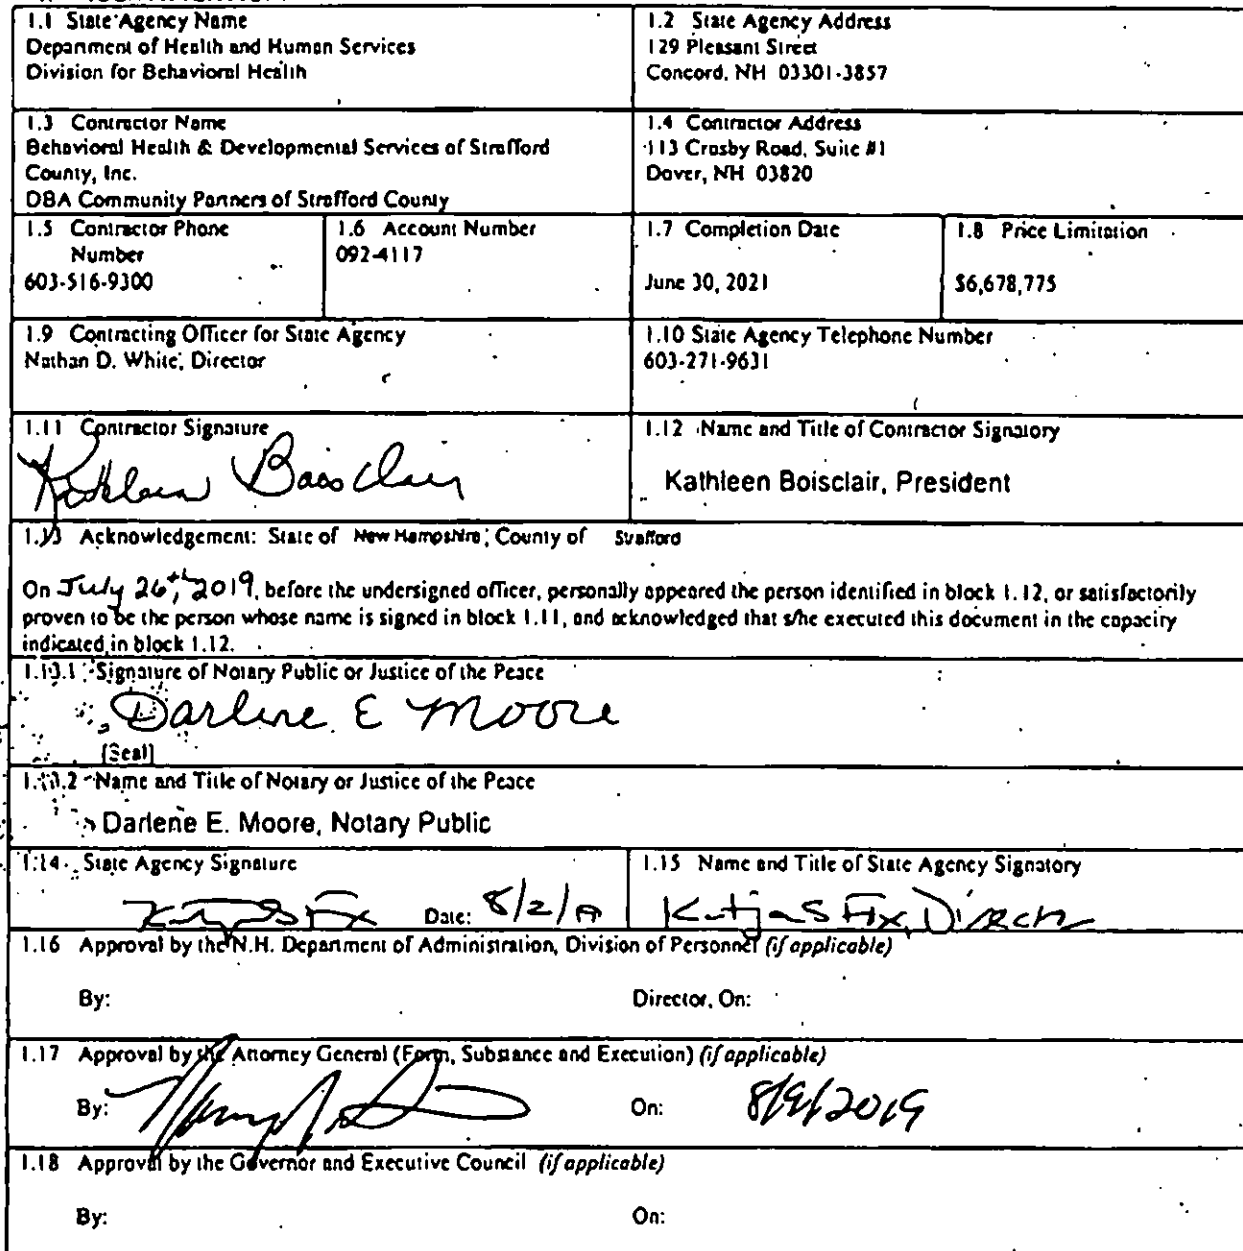 1.1 State Agency Name
Department of Health and Human Services
Division for Behavioral Health
1.2 State Agency Address
129 Pleasant Street
Concord, NH 03301-3857
1.3 Contractor Name
Behavioral Health & Developmental Services of Strafford
County, Inc.
DBA Community Partners of Strafford County
1.4 Contractor Address
113 Crosby Road, Suite #1
Dover, NH 03820
1.5 Contractor Phone
Number
603-516-9300
1.6 Account Number
092-4117
1.7 Completion Date
June 30, 2021
1.8 Price Limitation
$6,678,775
1.9 Contracting Officer for State Agency
Nathan D. White, Director
1.10 State Agency Telephone Number
603-271-9631
1.11 Contractor Signature
Kathleen Boisclair
1.12 Name and Title of Contractor Signatory
Kathleen Boisclair, President
1.13 Acknowledgement: State of New Hampshire, County of Strafford
On July 26th, 2019, before the undersigned officer, personally appeared the person identified in block 1.12, or satisfactorily
proven to be the person whose name is signed in block 1.11, and acknowledged that s/he executed this document in the capacity
indicated in block 1.12.
1.13.1 Signature of Notary Public or Justice of the Peace
Darlene E Moore
[Seal]
1.13.2 Name and Title of Notary or Justice of the Peace
Darlene E. Moore, Notary Public
1.14 State Agency Signature
Date: 8/2/19
1.15 Name and Title of State Agency Signatory
Katja S Fox, Director
1.16 Approval by the N.H. Department of Administration, Division of Personnel (if applicable)
By:
Director, On:
1.17 Approval by the Attorney General (Form, Substance and Execution) (if applicable)
By:
On: 8/9/2019
1.18 Approval by the Governor and Executive Council (if applicable)
By:
On: